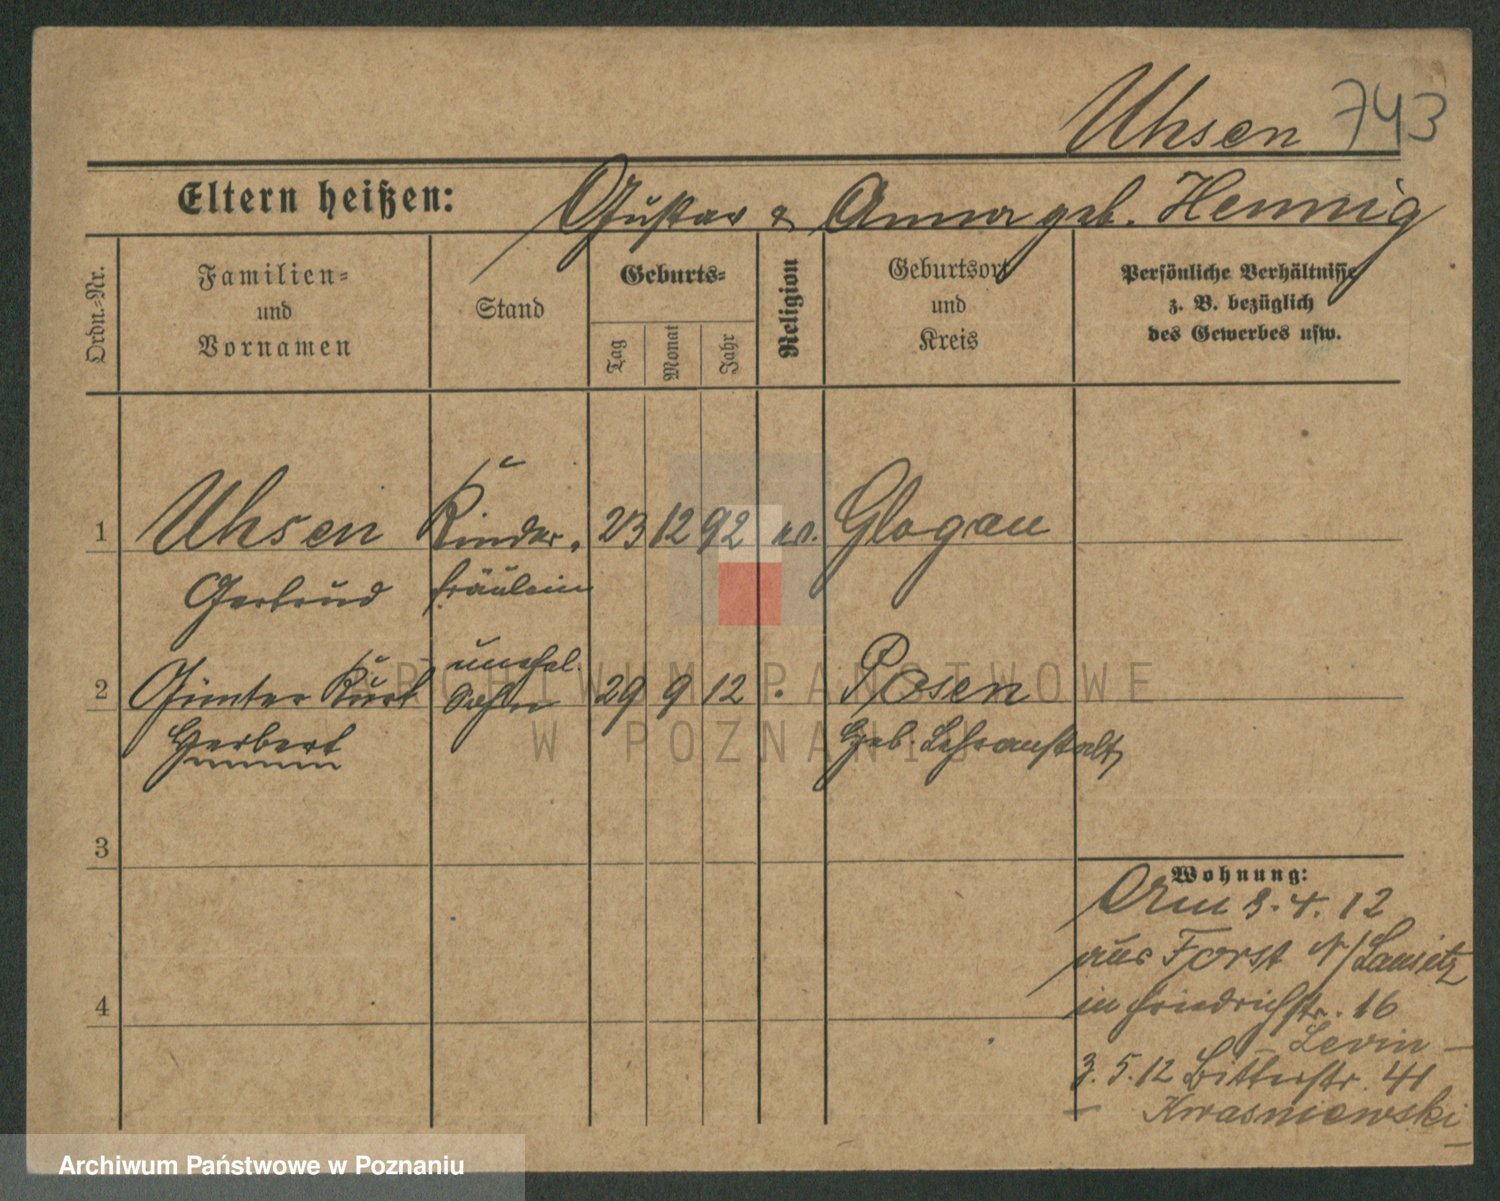 Uhsen 743
Eltern heißen: Gustav & Anna geb. Hennig
Ordn.-Nr.
Familien-
und
Vornamen
Stand
Geburts-
Tag
Monat
Jahr
Religion
Geburtsort
und
Kreis
Persönliche Verhältnisse
z. B. bezüglich
des Gewerbes usw.
1 Uhsen Kinder- 23 12 92 ev. Glogau
Gertrud fräulein
2 Günter Kurt unehel. Sohn 29 9 12 Posen
Herbert Geb. Lehranstalt
3
4
Wohnung:
Am 3.4.12
aus Forst N/Lausitz
in Friedrichstr. 16
- Levin -
3.5.12 Bitterstr. 41
- Kwasniewski -
ARCHIWUM PAŃSTWOWE
W POZNANIU
Archiwum Państwowe w Poznaniu